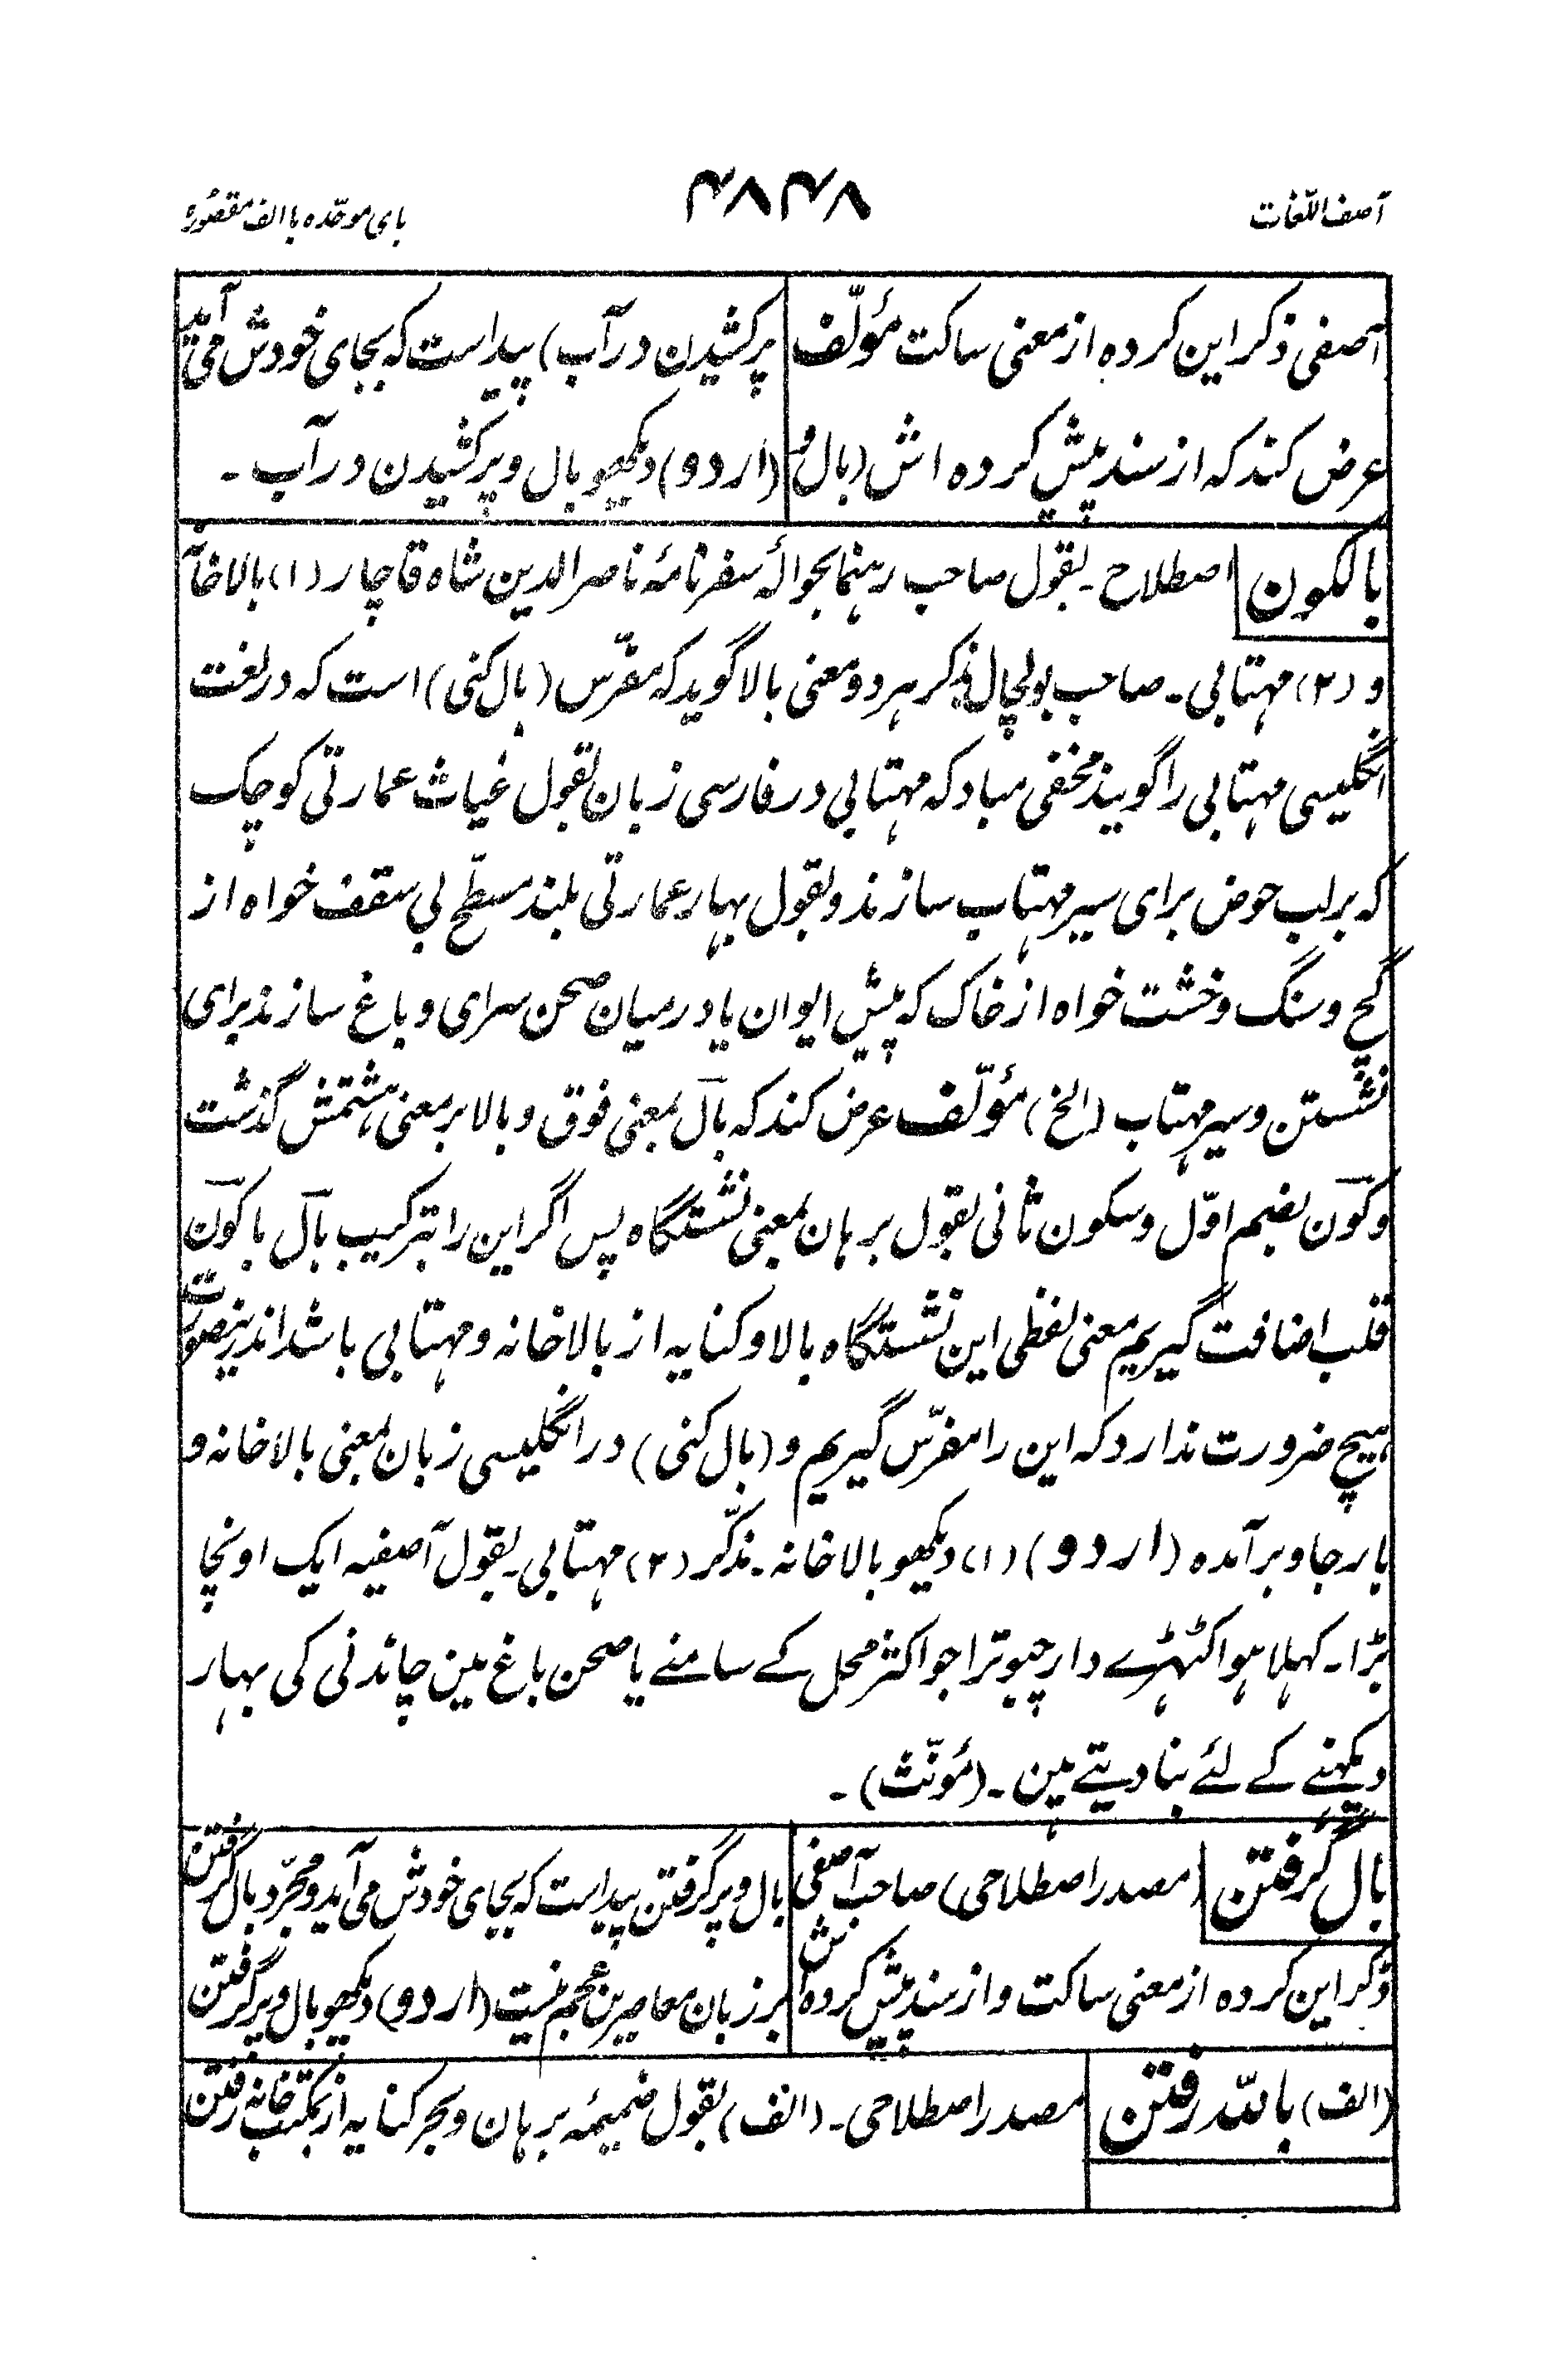 آصف اللّغات
۴۸۴۸
بای موحّده با الف مقصُوره
آصفی ذکر این کرده از معنی ساکت مؤلّف
عرض کند کہ از سند پیش کردہ اش (بال و
پر کشیدن در آب) پیداست کہ بجای خودش می آید
(اردو) دیکھو بال و پر کشیدن در آب ۔
بالکون اصطلاح ۔ بقول صاحب رہنما بحوالۂ سفرنامۂ ناصر الدین شاہ قاچار (۱) بالاخانہ
و (۲) مہتابی ۔ صاحب بولچال بذکر ہردو معنی بالا گوید کہ مفرّس (بال کنی) است کہ در لغت
انگلیسی مہتابی را گویند مخفی مباد کہ مہتابی در فارسی زبان بقول غیاث عمارتی کوچک
کہ بر لب حوض برای سیر مہتاب سازند و بقول بہار عمارتی بلند مسطّح بی سقف خواہ از
گچ و سنگ و خشت خواہ از خاک کہ پیش ایوان یا در میان صحن سرای و باغ سازند برای
نشستن و سیر مہتاب (الخ) مؤلّف عرض کند کہ بال بمعنی فوق و بالا بر معنی ہشتمش گذشت
و کون بضم اوّل و سکون ثانی بقول برہان بمعنی نشستگاہ پس اگر این را بترکیب بال با کون
قلب اضافت گیریم معنی لفظی این نشستگاہ بالا و کنایہ از بالاخانہ و مہتابی باشد اندرینصورت
ہیچ ضرورت ندارد کہ این را مفرّس گیریم و (بال کنی) در انگلیسی زبان بمعنی بالاخانہ و
بارجا و برآمدہ (اردو) (۱) دیکھو بالاخانہ ۔ مذکّر (۲) مہتابی ۔ بقول آصفیہ ایک اونچا
بڑا ۔ کہلا ہوا کٹہڑے دار چبوترا جو اکثر محل کے سامنے یا صحن باغ مین چاندنی کی بہار
دیکہنے کے لئے بنا دیتے ہین ۔ (مؤنّث) ۔
بال گرفتن (مصدر اصطلاحی) صاحب آصفی
ذکر این کردہ از معنی ساکت و از سند پیش کردہ اش
بال و پر گرفتن پیداست کہ بجای خودش می آید و مجرّد بال گرفتن
بر زبان معاصرین عجم نیست (اردو) دیکھو بال و پر گرفتن
(الف) باللّٰہ رفتن مصدر اصطلاحی ۔ (الف) بقول ضمیمۂ برہان و بحر کنایہ از بمکتب خانہ رفتن